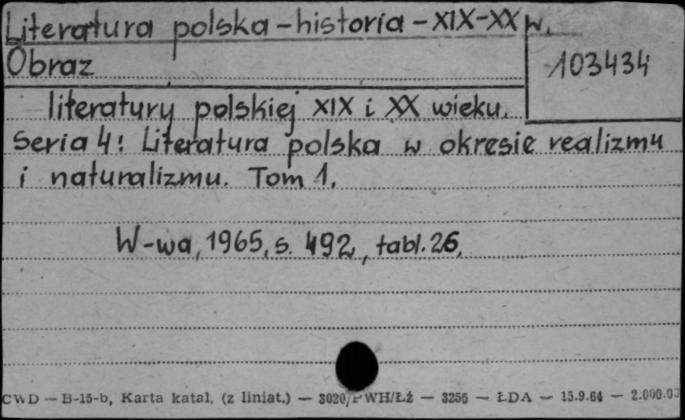 Literatura polska - historia - XIX-XX w.
Obraz
103434
literatury polskiej XIX i XX wieku.
Seria 4: Literatura polska w okresie realizmu
i naturalizmu. Tom 1.
W-wa, 1965, s. 492, tabl. 26.
CWD — B-15-b, Karta katal. (z liniat.) — 3020/PWH/Łź — 3255 — ŁDA — 15.9.64 — 2.000.03